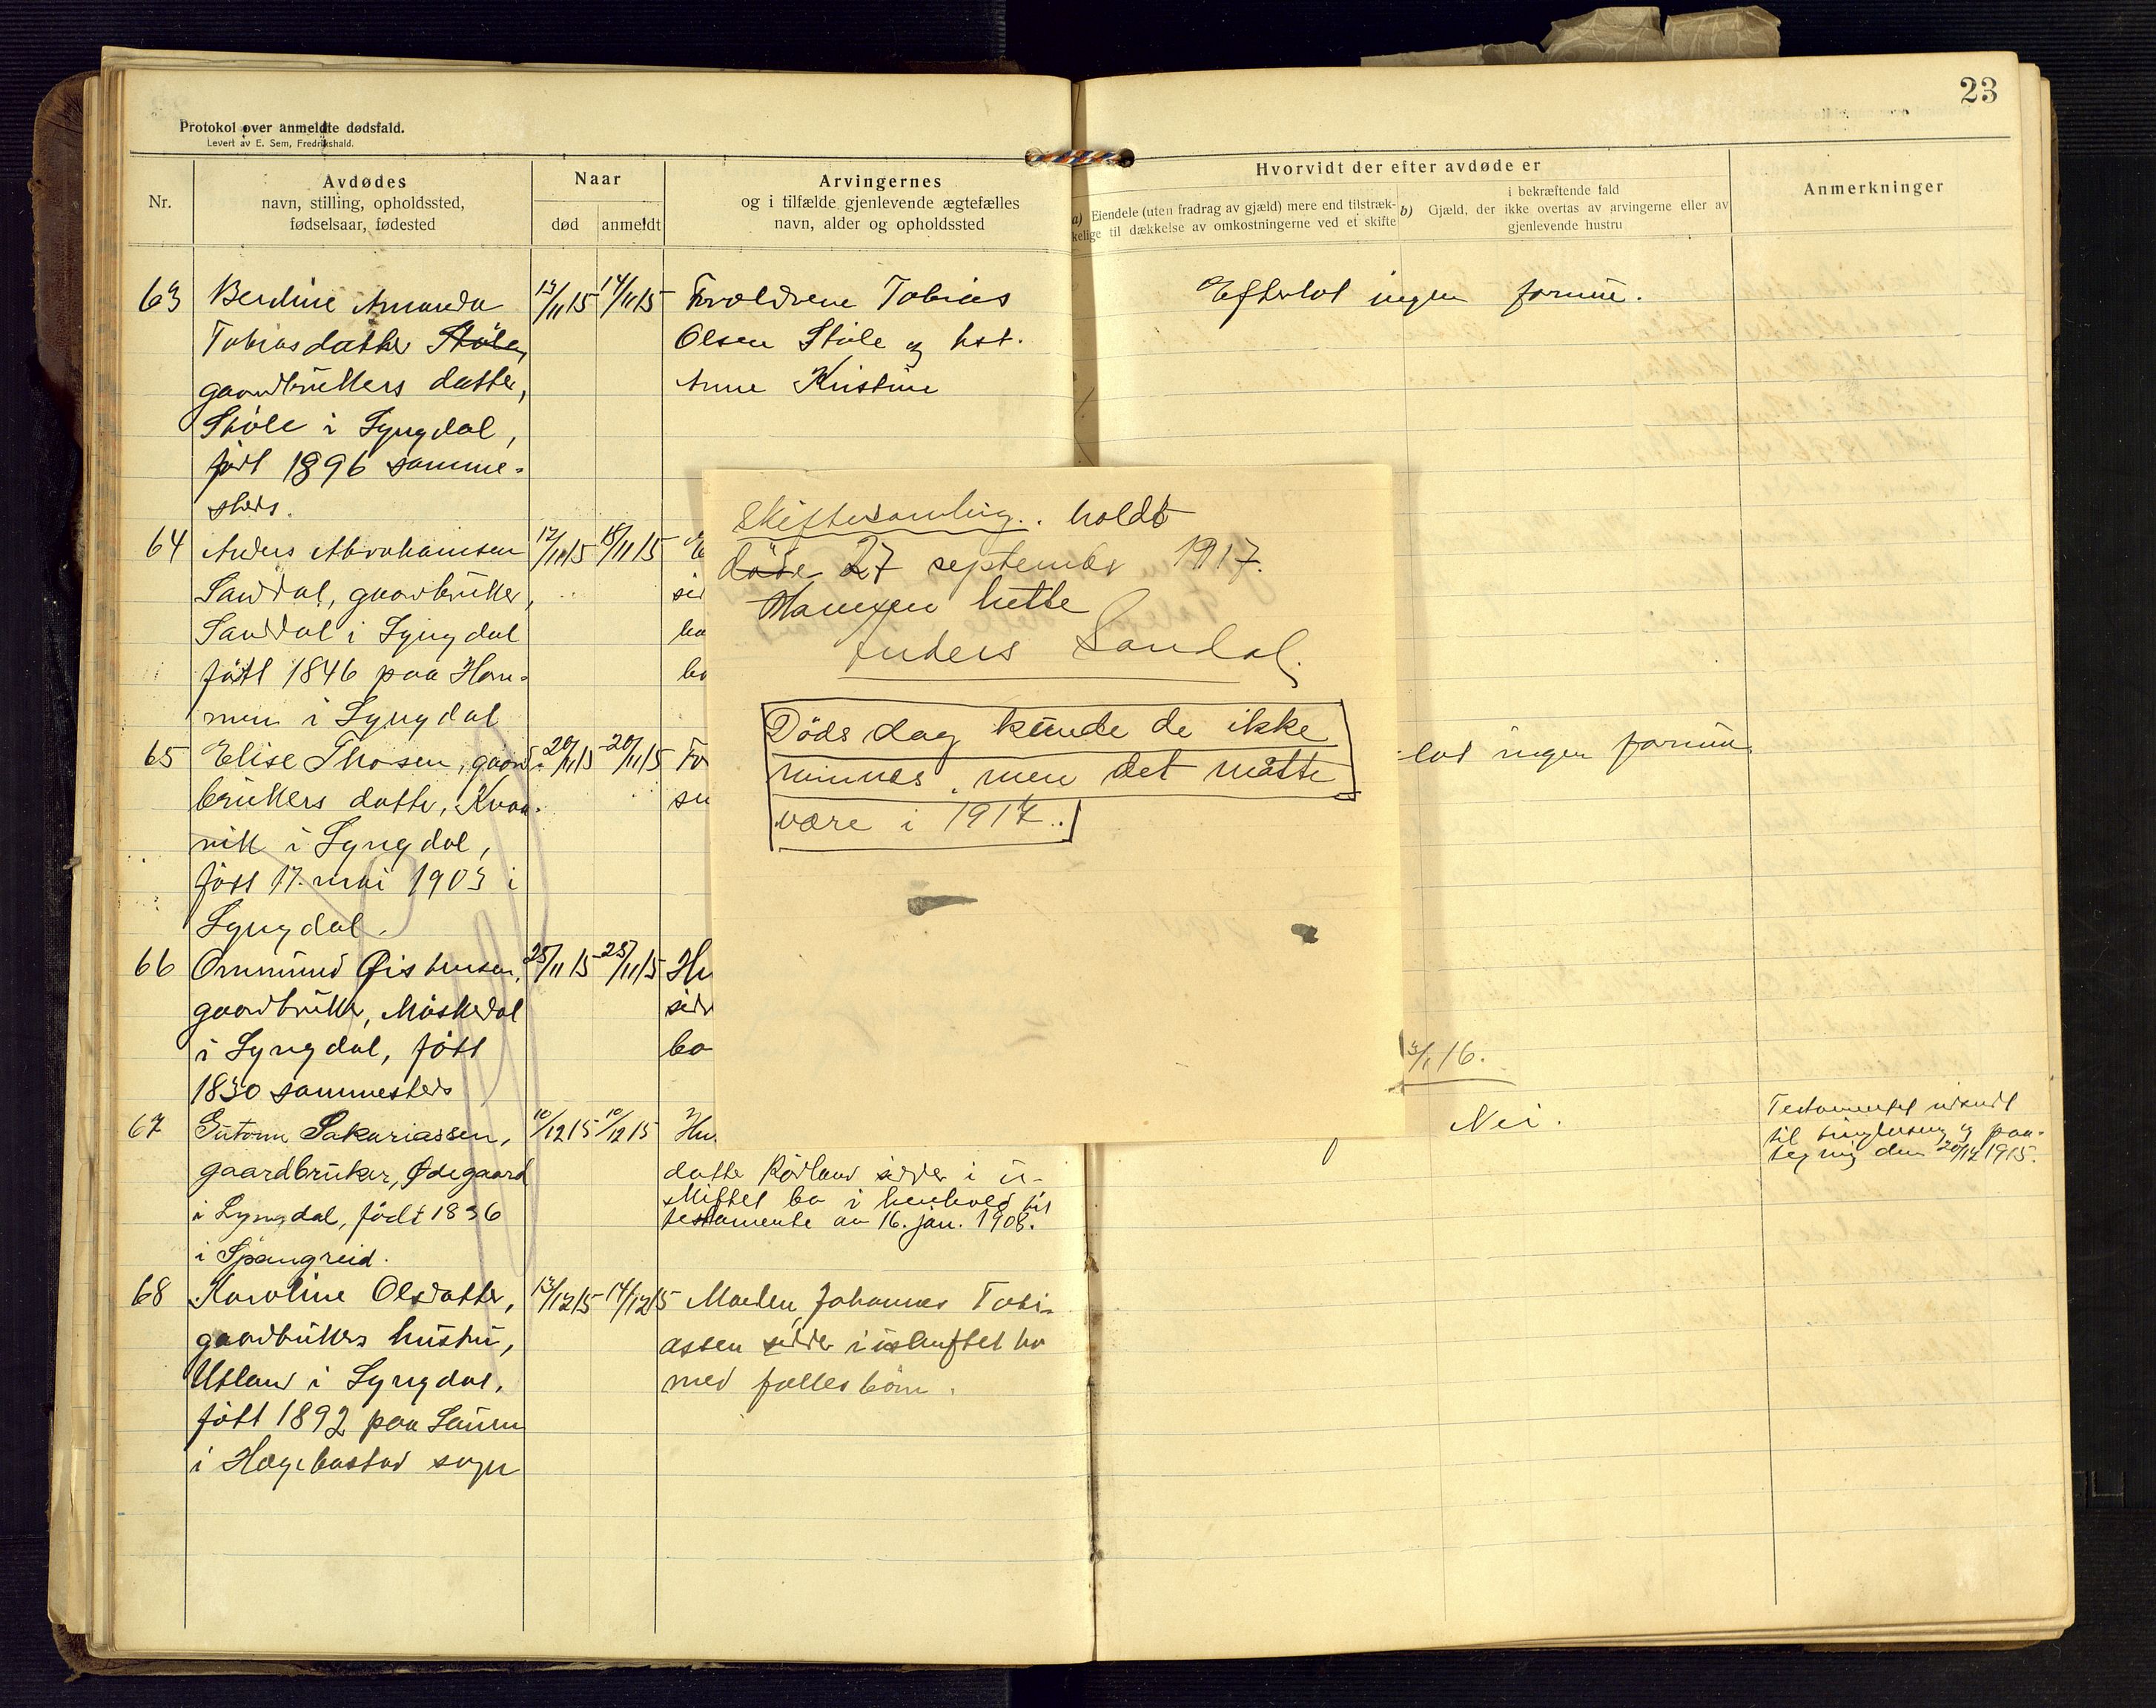 23
Protokol over anmeldte dødsfald.
Levert av E. Sem, Fredrikshald.
Nr.
Avdødes
navn, stilling, opholdssted,
fødselsaar, fødested
Naar
død
anmeldt
Arvingernes
og i tilfælde gjenlevende ægtefælles
navn, alder og opholdssted
Hvorvidt der efter avdøde er
a) Eiendele (uten fradrag av gjæld) mere end tilstræk-
kelige til dækkelse av omkostningerne ved et skifte
i bekræftende fald
b) Gjæld, der ikke overtas av arvingerne eller av
gjenlevende hustru
Anmerkninger
63
Berdine Amanda
Tobiasdatter Støle,
gaardbrukers datter,
Støle i Lyngdal,
født 1896 samme-
steds.
13/11 15
14/11 15
Forældrene Tobias
Olsen Støle og hst.
Anne Kristine
Efterlot ingen formue.
64
Anders Abrahamsen
Sandal, gaardbruker,
Sandal i Lyngdal
født 1846 paa Ham-
men i Lyngdal
17/11 15
18/11 15
sid
bo
65
Elise Thorsen, gaard-
brukers datter, Kvaa-
vik i Lyngdal,
født 17. mai 1903 i
Lyngdal.
20/11 15
20/11 15
Fo
lot ingen formue
66
Ommund Øistensen,
gaardbruker, Møskedal
i Lyngdal, født
1830 sammesteds
25/11 15
25/11 15
Hu
sidd
bo
3/1 16.
67
Gutorm Sakariassen,
gaardbruker, Ødegaard
i Lyngdal, født 1836
i Spangreid.
10/12 15
10/12 15
Hu.
datter Rødland sidder i u-
skiftet bo i henhold til
testamente av 16. jan. 1908.
Nei.
Testamentet utsendt
til tinglæsning og paa-
tegning den 20/12 1915.
68
Karoline Olsdatter,
gaardbrukers hustru,
Utland i Lyngdal,
født 1892 paa Lauen
i Hægebostad sogn
13/12 15
14/12 15
Manden, Johannes Tobi-
assen sidder i uskiftet bo
med fælles børn.
Skiftesamling. holdt
døde 27 september 1917.
Mannen hette
Anders Sandal.
Døds dag kunde de ikke
minnes, men det måtte
være i 1917..